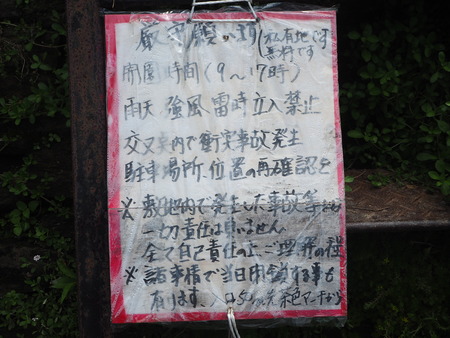 厳守願います(私有地です
無料です
開園時間(9〜17時)
雨天、強風、雷時立入禁止
交叉点内で衝突事故発生
駐車場所、位置の再確認を
※敷地内で発生した事故等
一切責任は負いません
全て自己責任の上、ご理解の程
※諸事情で当日閉鎖する事も
有ります、